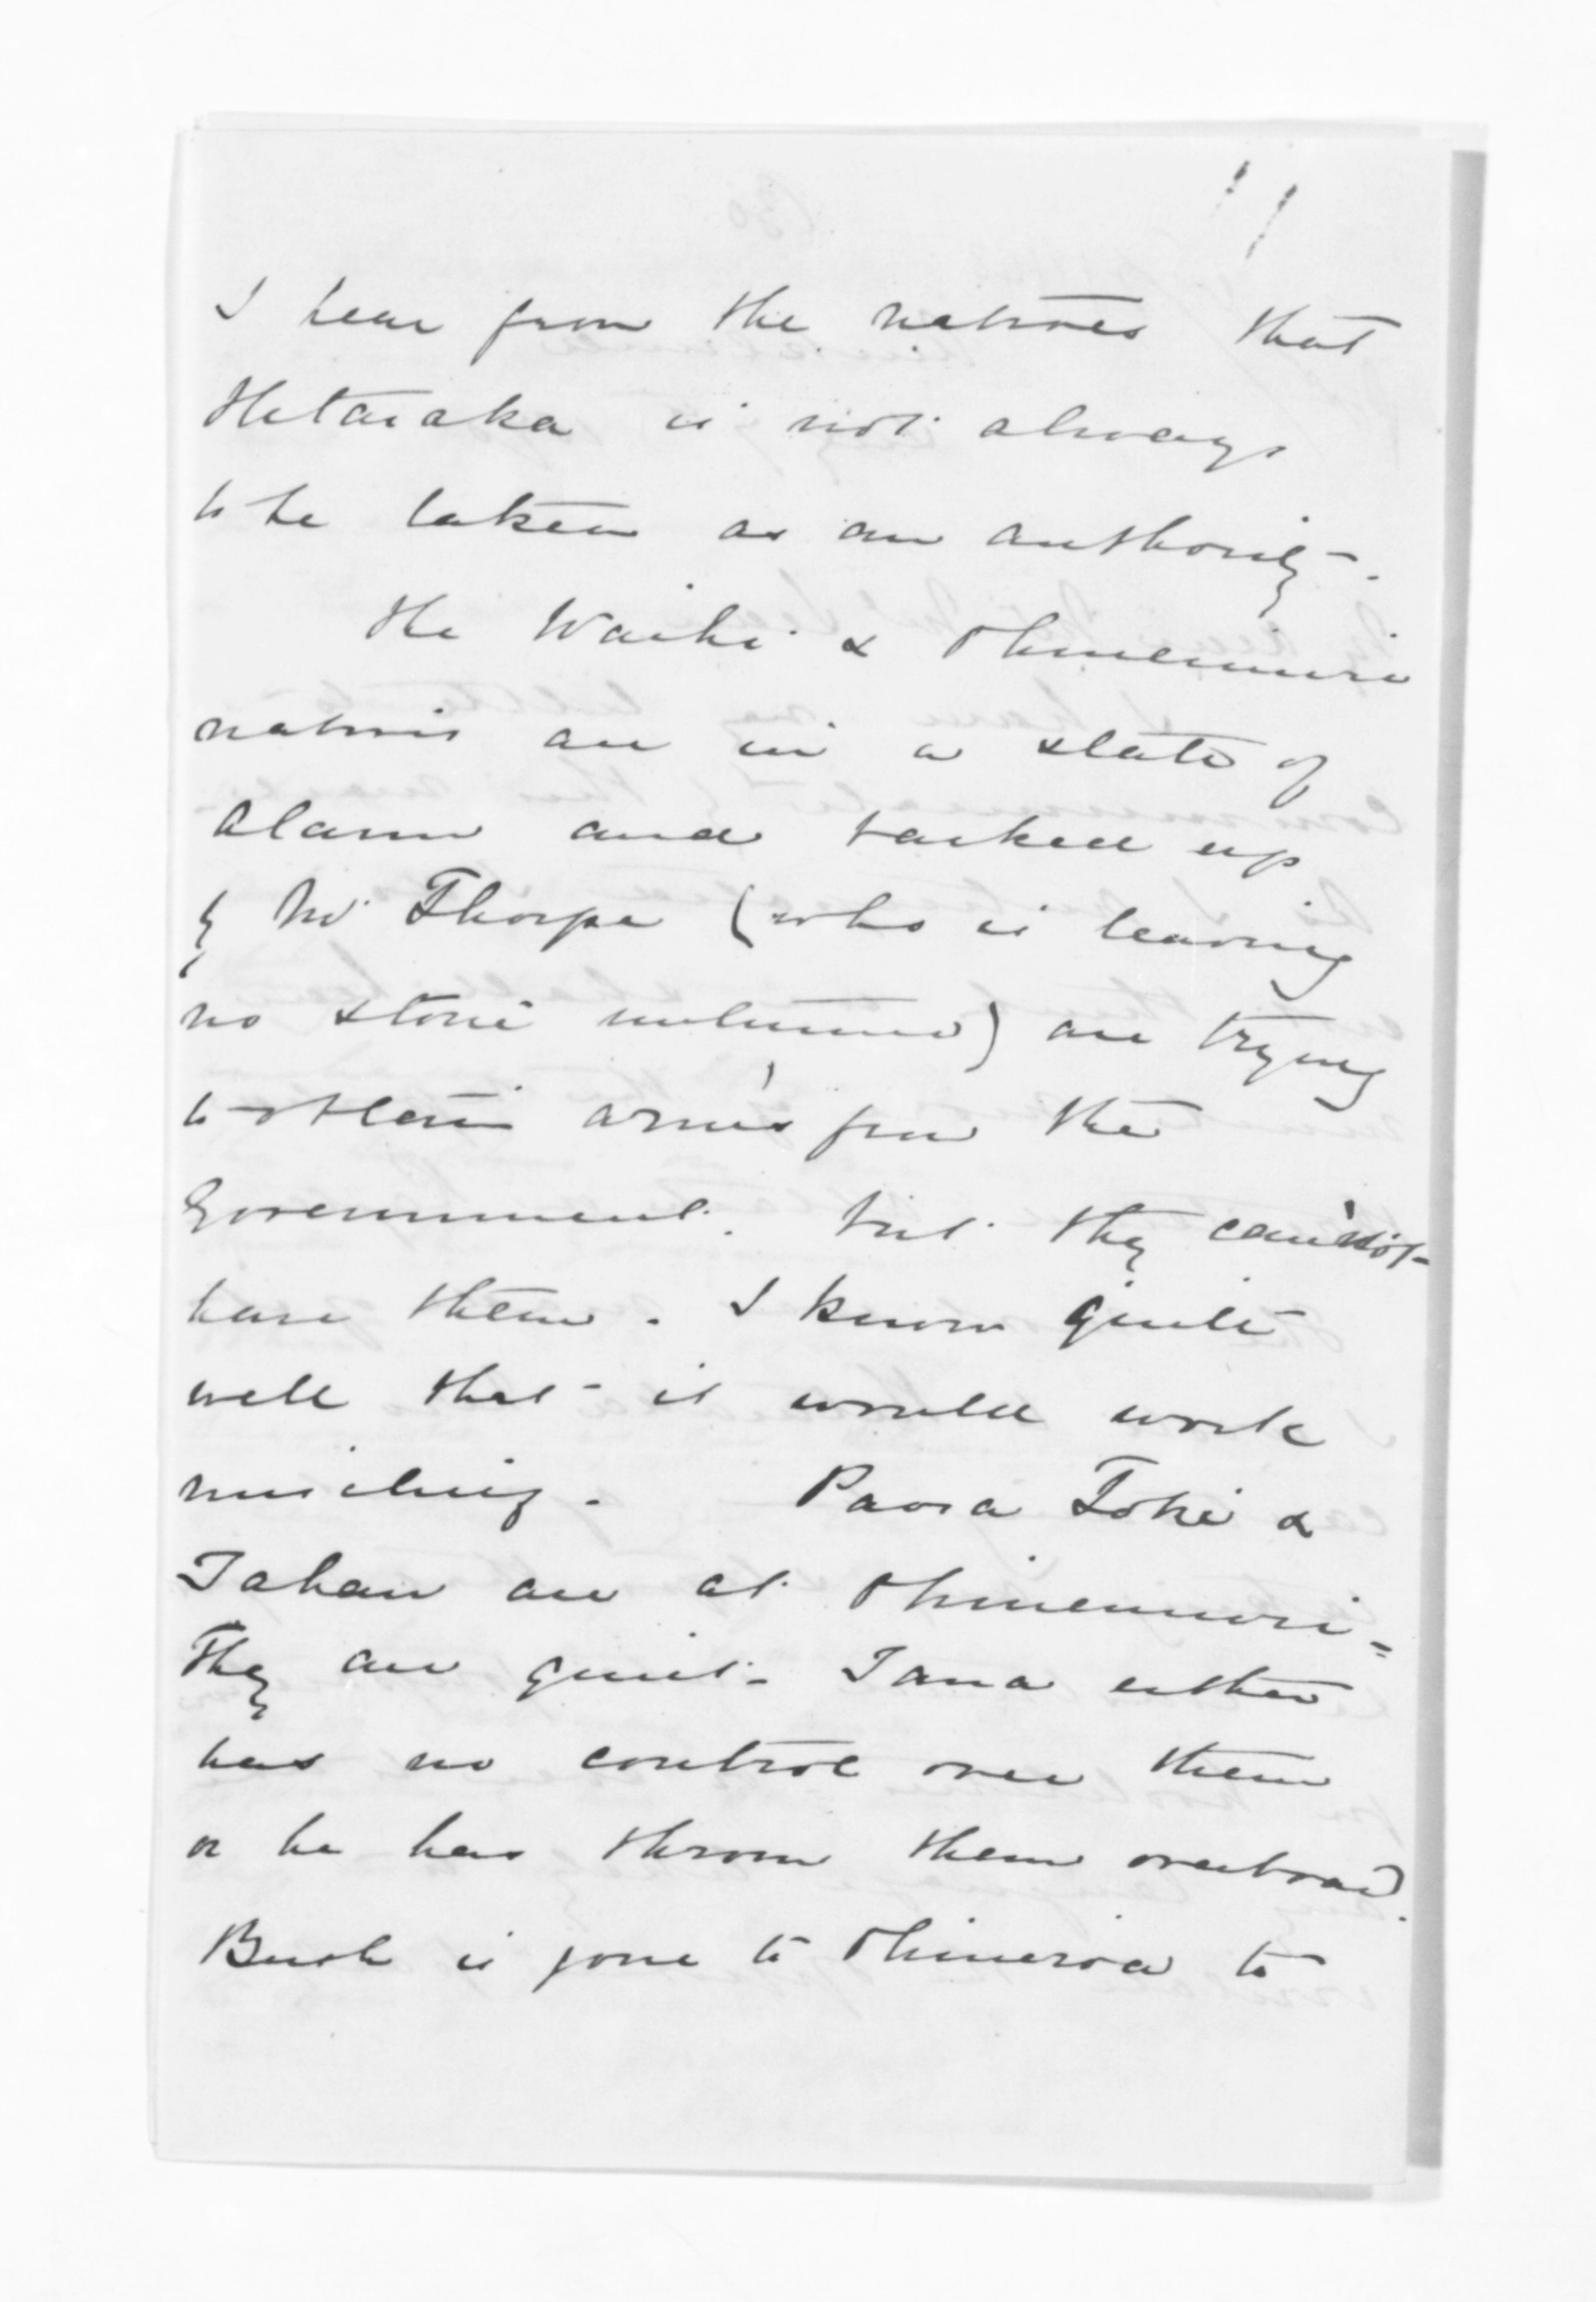 I hear from the natives that
Hetaraka is not always
to be taken as an authority.
The Waihi & Ohinemuri
natives are in a state of
alarm and backed up
by Mr Thorpe (who is leaving
no stone unturned) are trying
to obtain arms from the
Government. but they cannot
have them. I know quite
well that it would work
mischief. Paora Toki &
are at Ohinemuri =
They are quiet. Tana either
has no control over them
or he has thrown them overboard.
Bush is gone to Ohineroa to